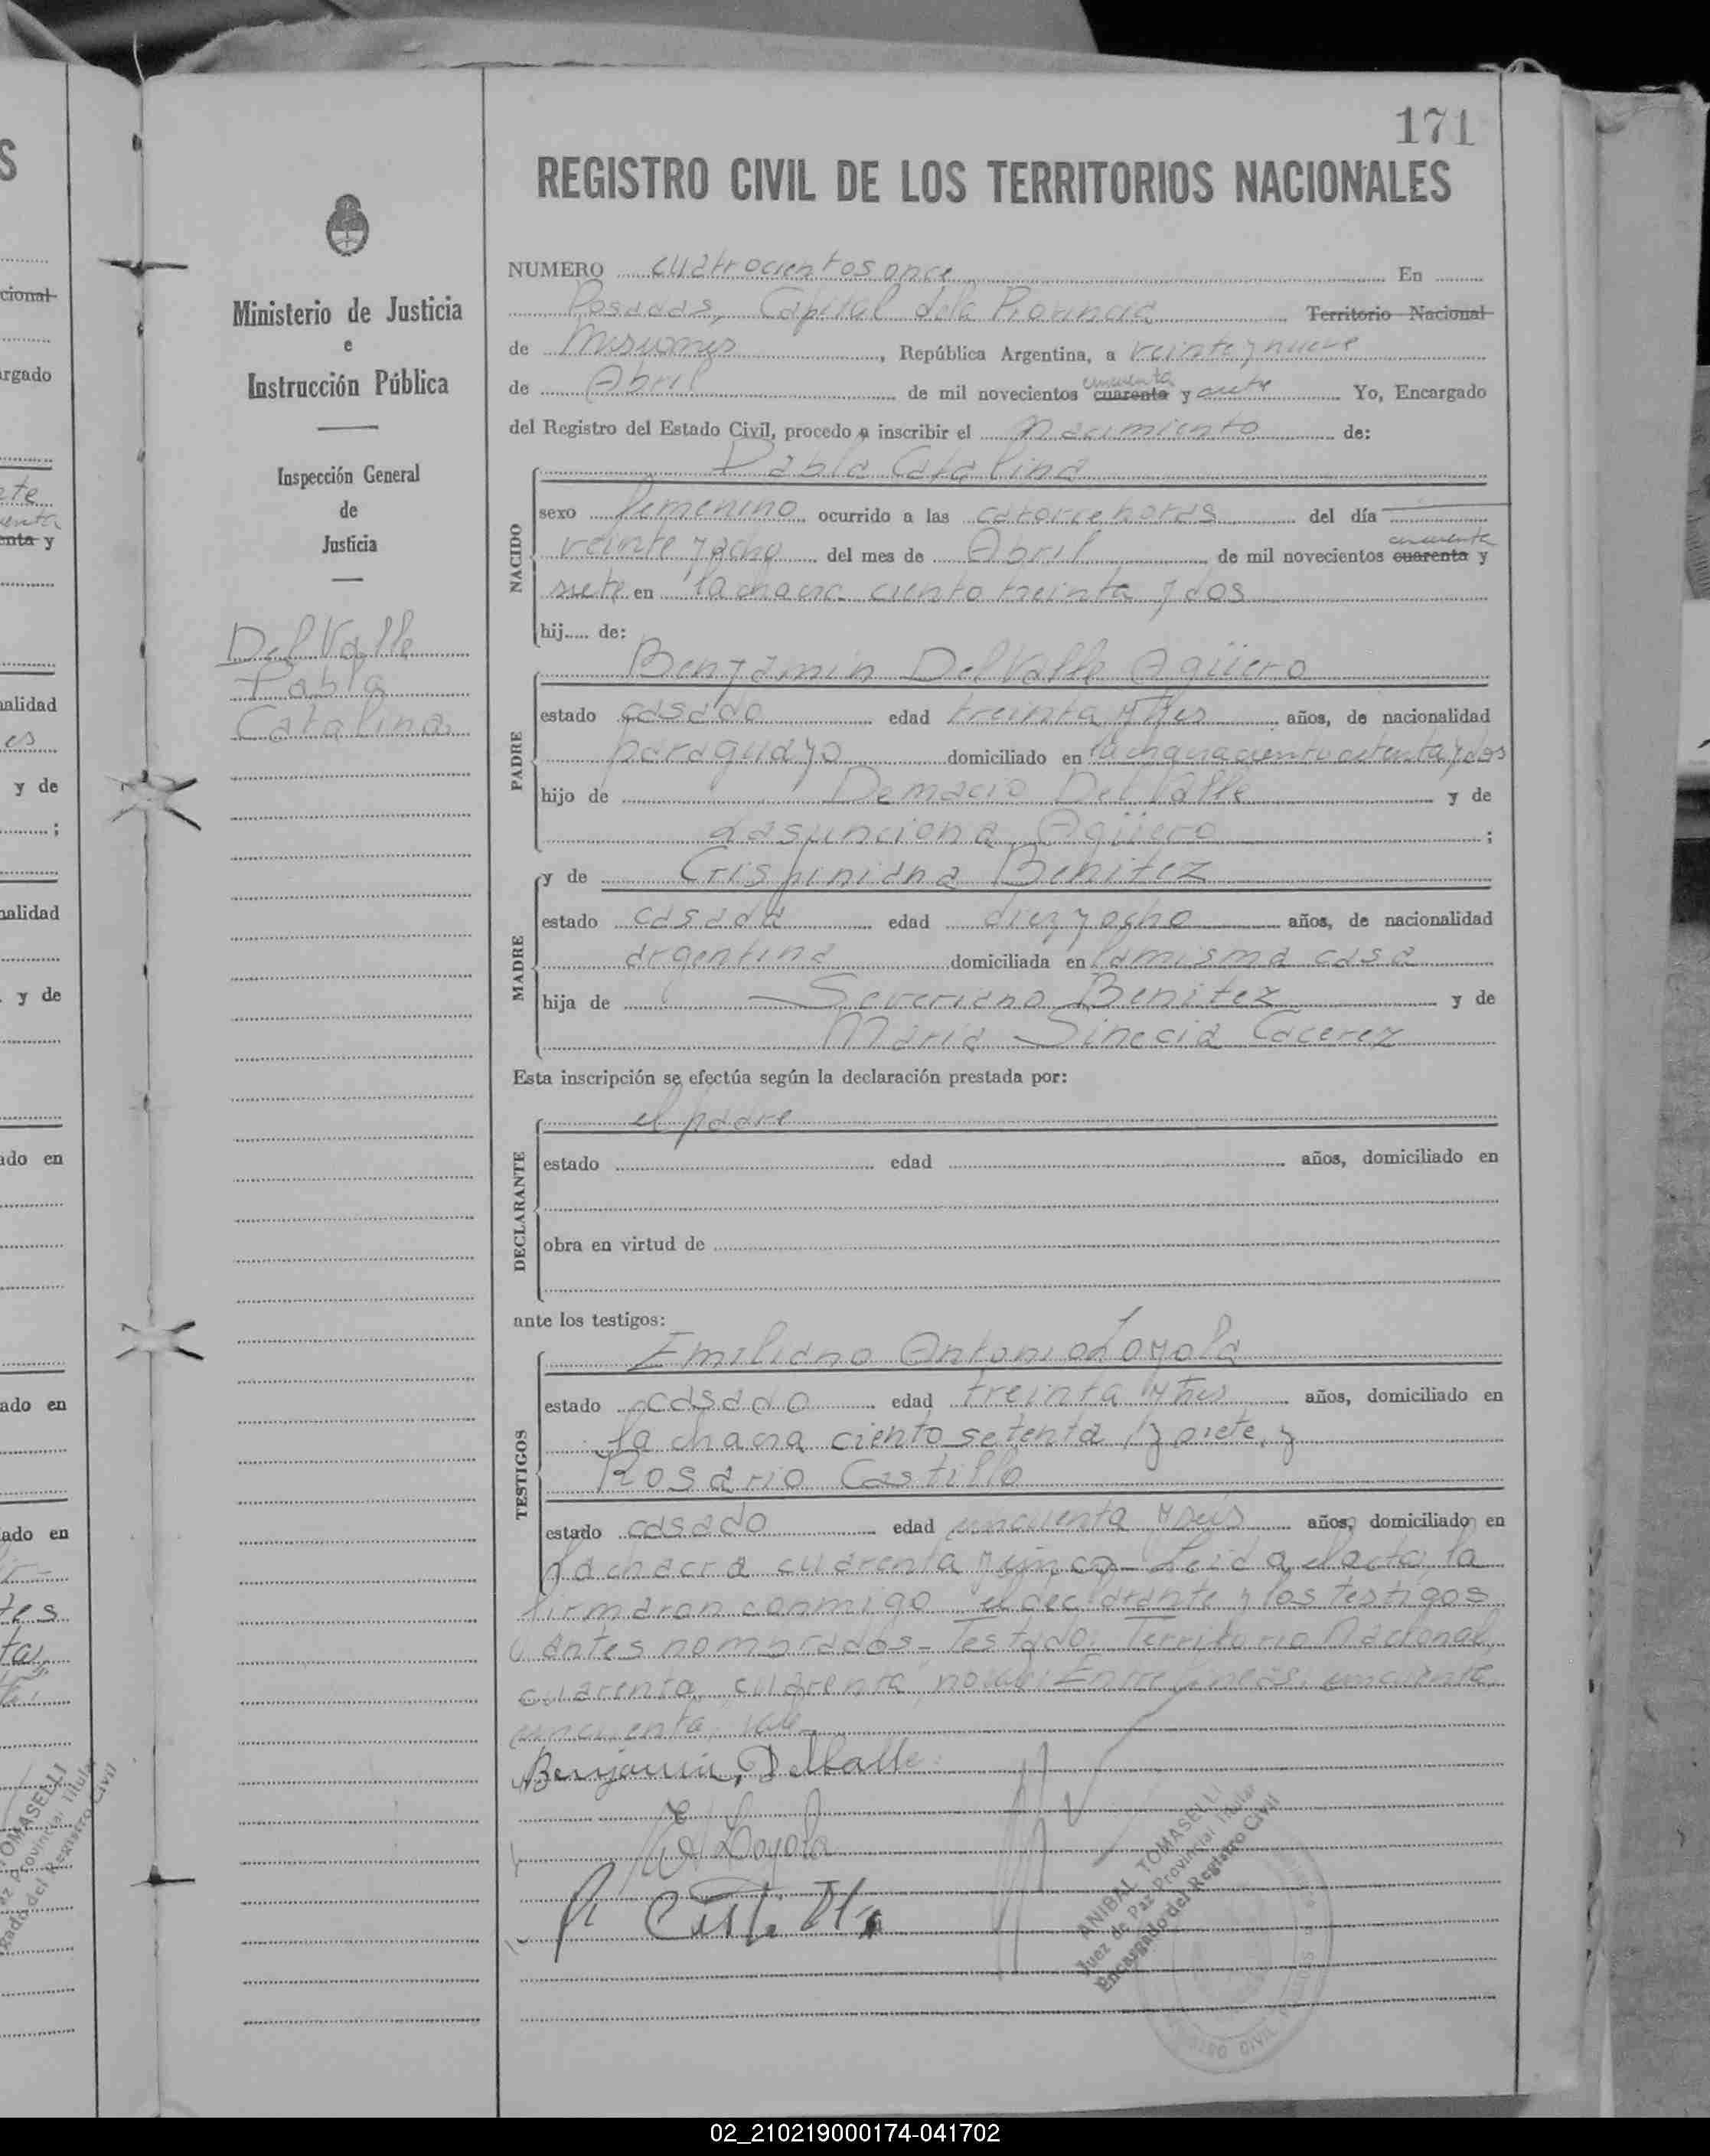 171
REGISTRO CIVIL DE LOS TERRITORIOS NACIONALES
Ministerio de Justicia
e
Instrucción Pública
Inspección General
de
Justicia
Del Valle
Pabla
Catalina
NUMERO cuatrocientos once En
Posadas, Capital de la Provincia Territorio Nacional
de Misiones, República Argentina, a veinte y nueve
de Abril de mil novecientos cuarenta cincuenta y siete Yo, Encargado
del Registro del Estado Civil, procedo a inscribir el nacimiento de:
NACIDO
Pabla Catalina
sexo femenino ocurrido a las catorce horas del día
veinte y ocho del mes de Abril de mil novecientos cuarenta cincuenta y
siete en la chacra ciento treinta y dos
hij..... de:
PADRE
Benjamin Del Valle Agüero
estado casado edad treinta y tres años, de nacionalidad
paraguayo domiciliado en la chacra ciento y dos
hijo de Demacio Del Valle y de
Asunciona Agüero ;
MADRE
y de Crispiniana Benitez
estado casada edad diez y ocho años, de nacionalidad
argentina domiciliada en la misma casa
hija de Severiano Benitez y de
Maria Sinecia Cacerez
Esta inscripción se efectúa según la declaración prestada por:
DECLARANTE
el padre
estado edad años, domiciliado en
obra en virtud de
ante los testigos:
TESTIGOS
Emiliano Antonio Loyola
estado casado edad treinta y tres años, domiciliado en
la chacra ciento setenta y siete, y
Rosario Castillo
estado casado edad cincuenta y seis años, domiciliado en
la chacra cuarenta y cinco - Leida el acta la
firmaron conmigo el declarante y los testigos
antes nombrados - Testado: Territorio Nacional,
cuarenta, cuarenta, no vale: Entre lineas, cincuenta,
cincuenta, vale
Benjamin, Delballe
E A Loyola
R Castillo
ANIBAL TOMASELLI
Juez de Paz Provincial Titular
Encargado del Registro Civil
02_210219000174-041702